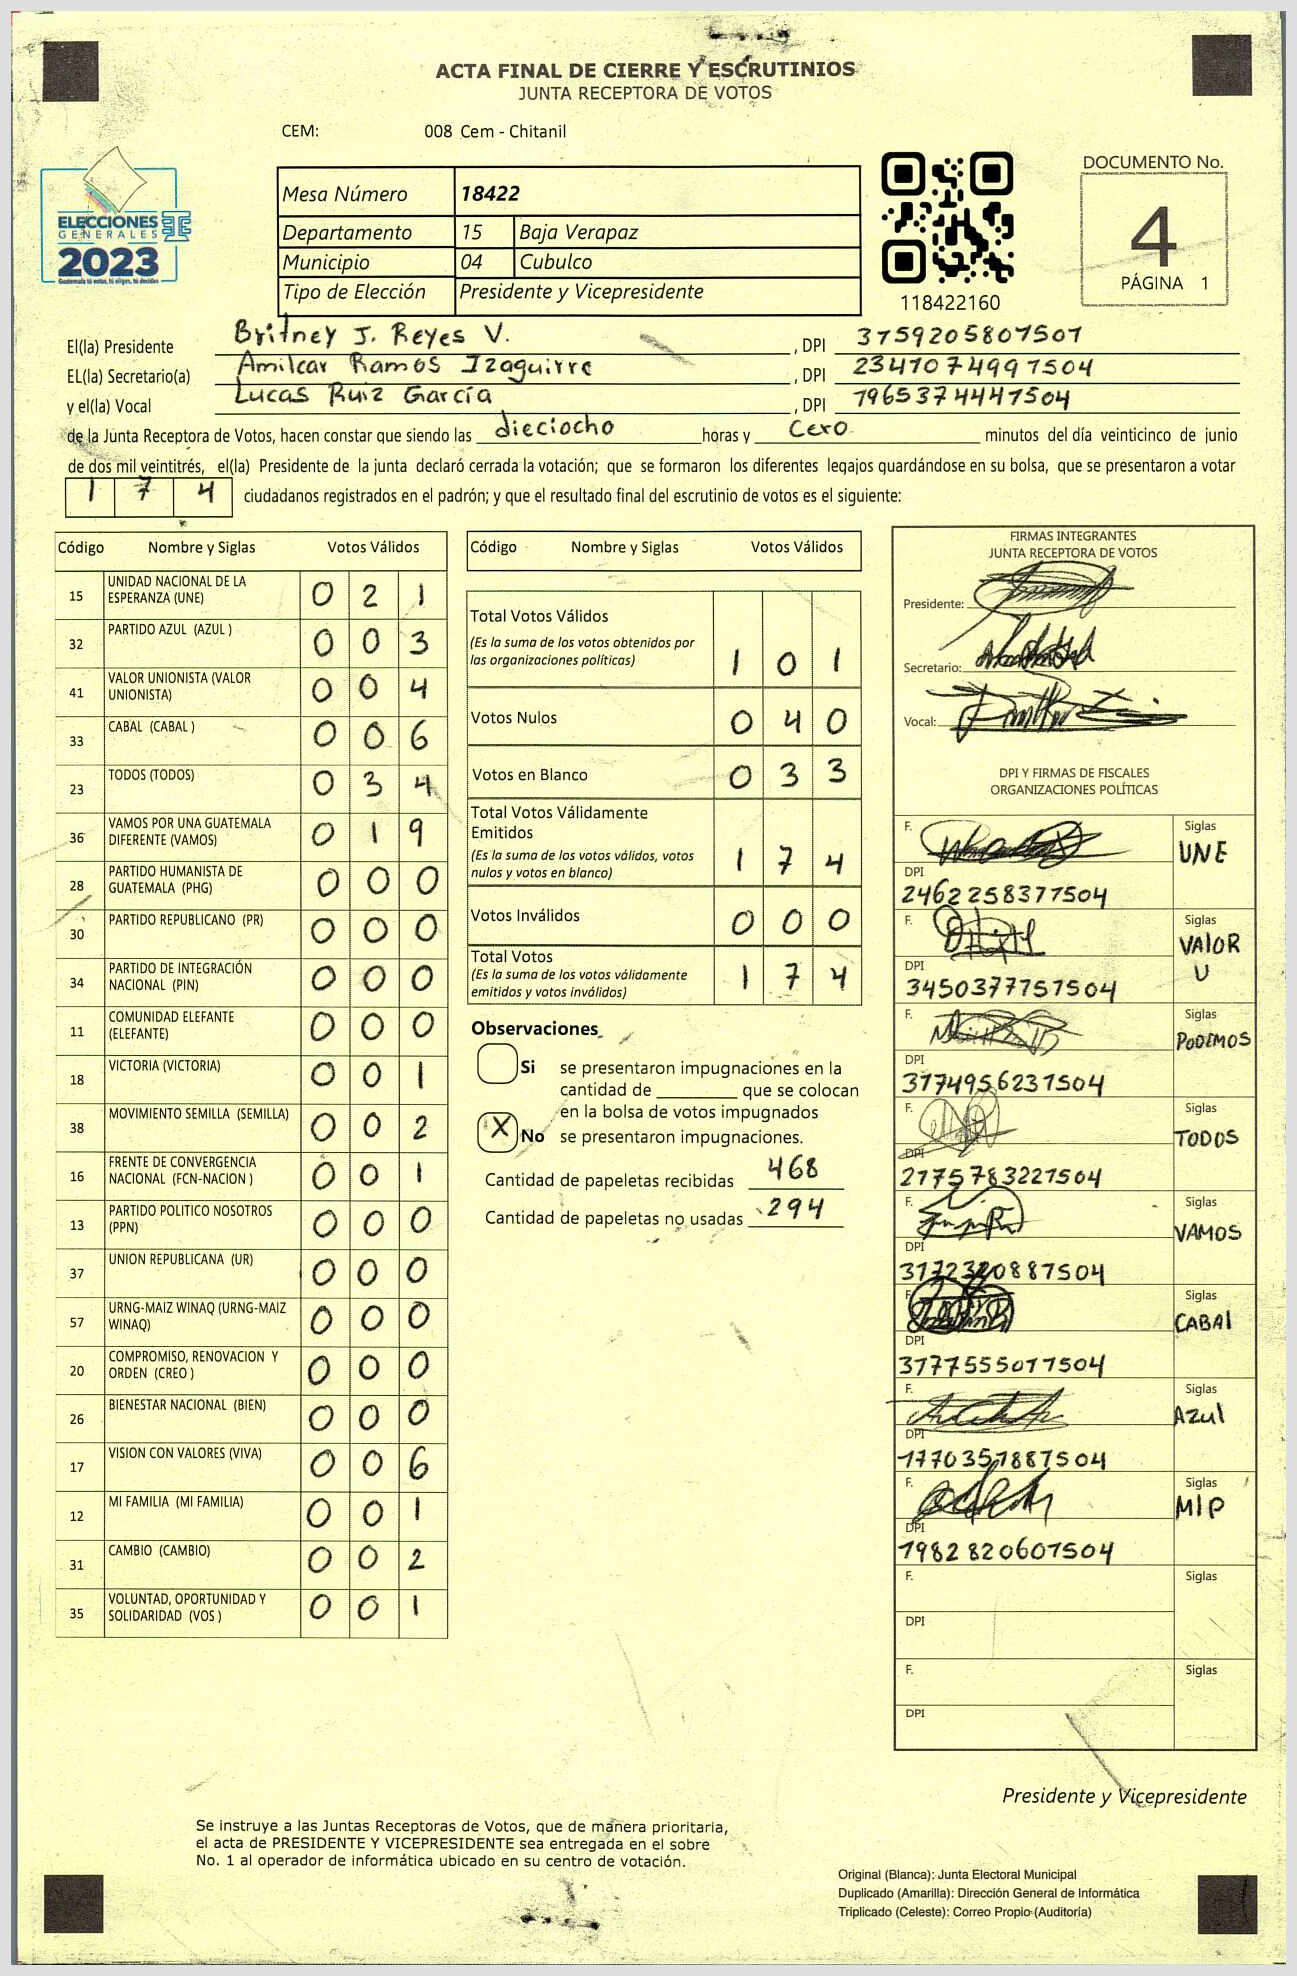 ACTA FINAL DE CIERRE Y ESCRUTINIOS
JUNTA RECEPTORA DE VOTOS
CEM: 008 Cem - Chitanil
ELECCIONES
GENERALES
2023
Guatemala tú votas, tú eliges, tú decides
Mesa Número 18422
Departamento 15 Baja Verapaz
Municipio 04 Cubulco
Tipo de Elección Presidente y Vicepresidente
118422160
DOCUMENTO No.
4
PÁGINA 1
El(la) Presidente Britney J. Reyes V. , DPI 3759205801501
EL(la) Secretario(a) Amilcar Ramos Izaguirre , DPI 2341074991504
y el(la) Vocal Lucas Ruiz García , DPI 1965374441504
de la Junta Receptora de Votos, hacen constar que siendo las dieciocho horas y cero minutos del día veinticinco de junio
de dos mil veintitrés, el(la) Presidente de la junta declaró cerrada la votación; que se formaron los diferentes legajos guardándose en su bolsa, que se presentaron a votar
1 7 4 ciudadanos registrados en el padrón; y que el resultado final del escrutinio de votos es el siguiente:
Código Nombre y Siglas Votos Válidos
15 UNIDAD NACIONAL DE LA ESPERANZA (UNE) 0 2 1
32 PARTIDO AZUL (AZUL ) 0 0 3
41 VALOR UNIONISTA (VALOR UNIONISTA) 0 0 4
33 CABAL (CABAL ) 0 0 6
23 TODOS (TODOS) 0 3 4
36 VAMOS POR UNA GUATEMALA DIFERENTE (VAMOS) 0 1 9
28 PARTIDO HUMANISTA DE GUATEMALA (PHG) 0 0 0
30 PARTIDO REPUBLICANO (PR) 0 0 0
34 PARTIDO DE INTEGRACIÓN NACIONAL (PIN) 0 0 0
11 COMUNIDAD ELEFANTE (ELEFANTE) 0 0 0
18 VICTORIA (VICTORIA) 0 0 1
38 MOVIMIENTO SEMILLA (SEMILLA) 0 0 2
16 FRENTE DE CONVERGENCIA NACIONAL (FCN-NACION ) 0 0 1
13 PARTIDO POLITICO NOSOTROS (PPN) 0 0 0
37 UNION REPUBLICANA (UR) 0 0 0
57 URNG-MAIZ WINAQ (URNG-MAIZ WINAQ) 0 0 0
20 COMPROMISO, RENOVACION Y ORDEN (CREO ) 0 0 0
26 BIENESTAR NACIONAL (BIEN) 0 0 0
17 VISION CON VALORES (VIVA) 0 0 6
12 MI FAMILIA (MI FAMILIA) 0 0 1
31 CAMBIO (CAMBIO) 0 0 2
35 VOLUNTAD, OPORTUNIDAD Y SOLIDARIDAD (VOS ) 0 0 1
Código Nombre y Siglas Votos Válidos
Total Votos Válidos
(Es la suma de los votos obtenidos por
las organizaciones políticas) 1 0 1
Votos Nulos 0 4 0
Votos en Blanco 0 3 3
Total Votos Válidamente
Emitidos
(Es la suma de los votos válidos, votos
nulos y votos en blanco) 1 7 4
Votos Inválidos 0 0 0
Total Votos
(Es la suma de los votos válidamente
emitidos y votos inválidos) 1 7 4
Observaciones
Si se presentaron impugnaciones en la
cantidad de ________ que se colocan
en la bolsa de votos impugnados
X No se presentaron impugnaciones.
Cantidad de papeletas recibidas 468
Cantidad de papeletas no usadas 294
FIRMAS INTEGRANTES
JUNTA RECEPTORA DE VOTOS
Presidente:
Secretario:
Vocal:
DPI Y FIRMAS DE FISCALES
ORGANIZACIONES POLÍTICAS
F. Siglas UNE
DPI 2462258371504
F. Siglas VALOR U
DPI 3450377751504
F. Siglas PODEMOS
DPI 3174956231504
F. Siglas TODOS
DPI 2175783221504
F. Siglas VAMOS
DPI 3172320881504
F. Siglas CABAl
DPI 3177555011504
F. Siglas AZUl
DPI 1770351881504
F. Siglas MlP
DPI 1982820601504
F. Siglas
DPI
F. Siglas
DPI
Presidente y Vicepresidente
Se instruye a las Juntas Receptoras de Votos, que de manera prioritaria,
el acta de PRESIDENTE Y VICEPRESIDENTE sea entregada en el sobre
No. 1 al operador de informática ubicado en su centro de votación.
Original (Blanca): Junta Electoral Municipal
Duplicado (Amarilla): Dirección General de Informática
Triplicado (Celeste): Correo Propio (Auditoría)